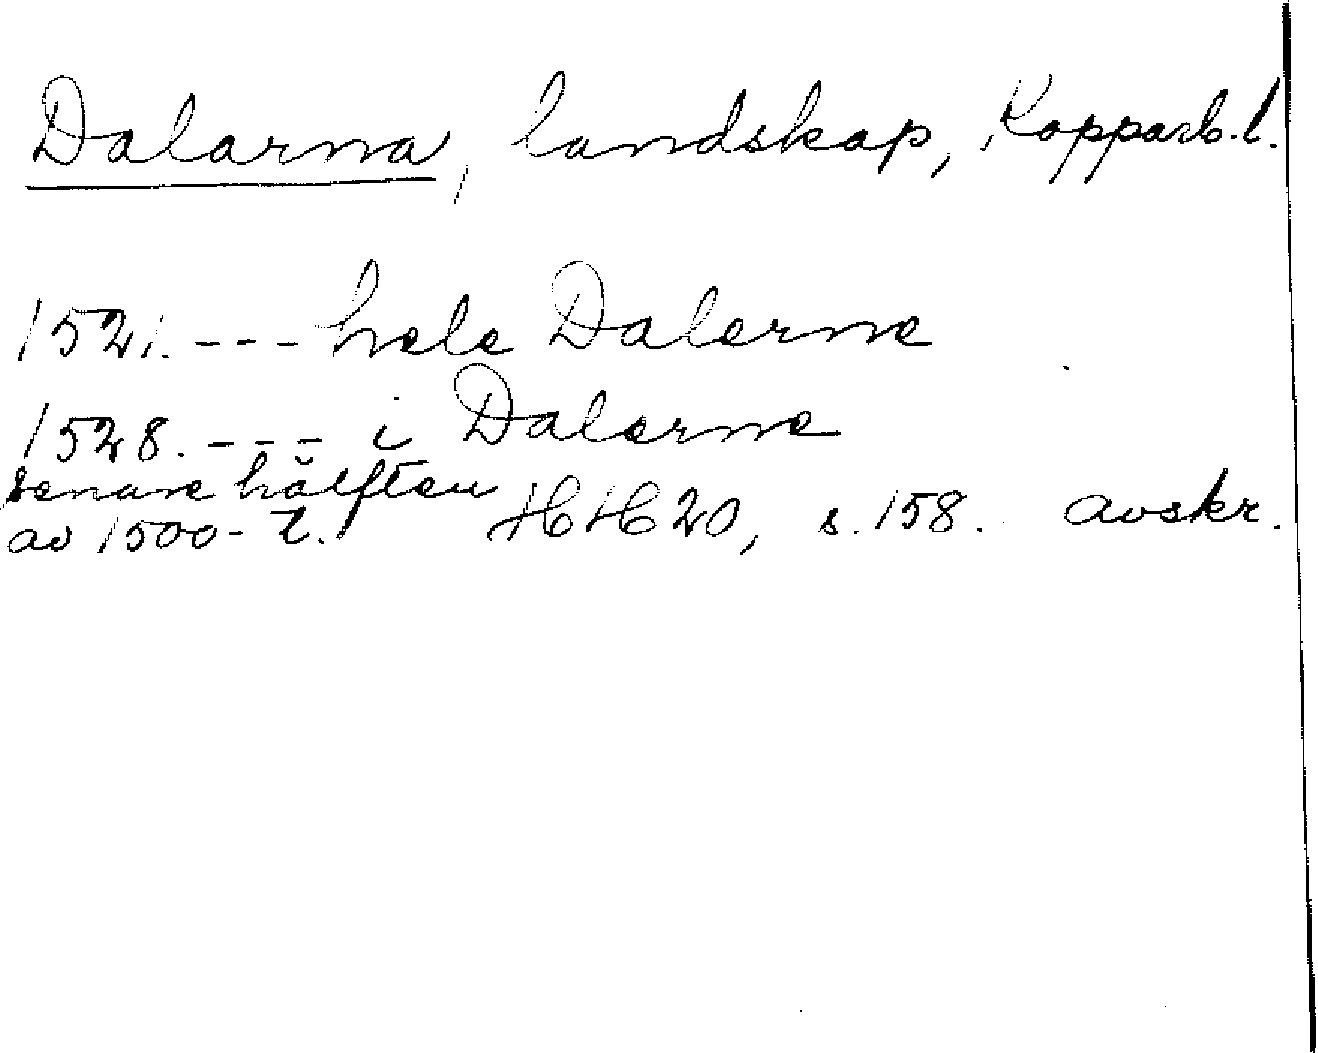 Dalarna, landskap, Kopparb.l.
1521. --- hele Dalerne
1528. --- i Dalerne
senare hälften
av 1500-t. HH 20, s. 158. avskr.